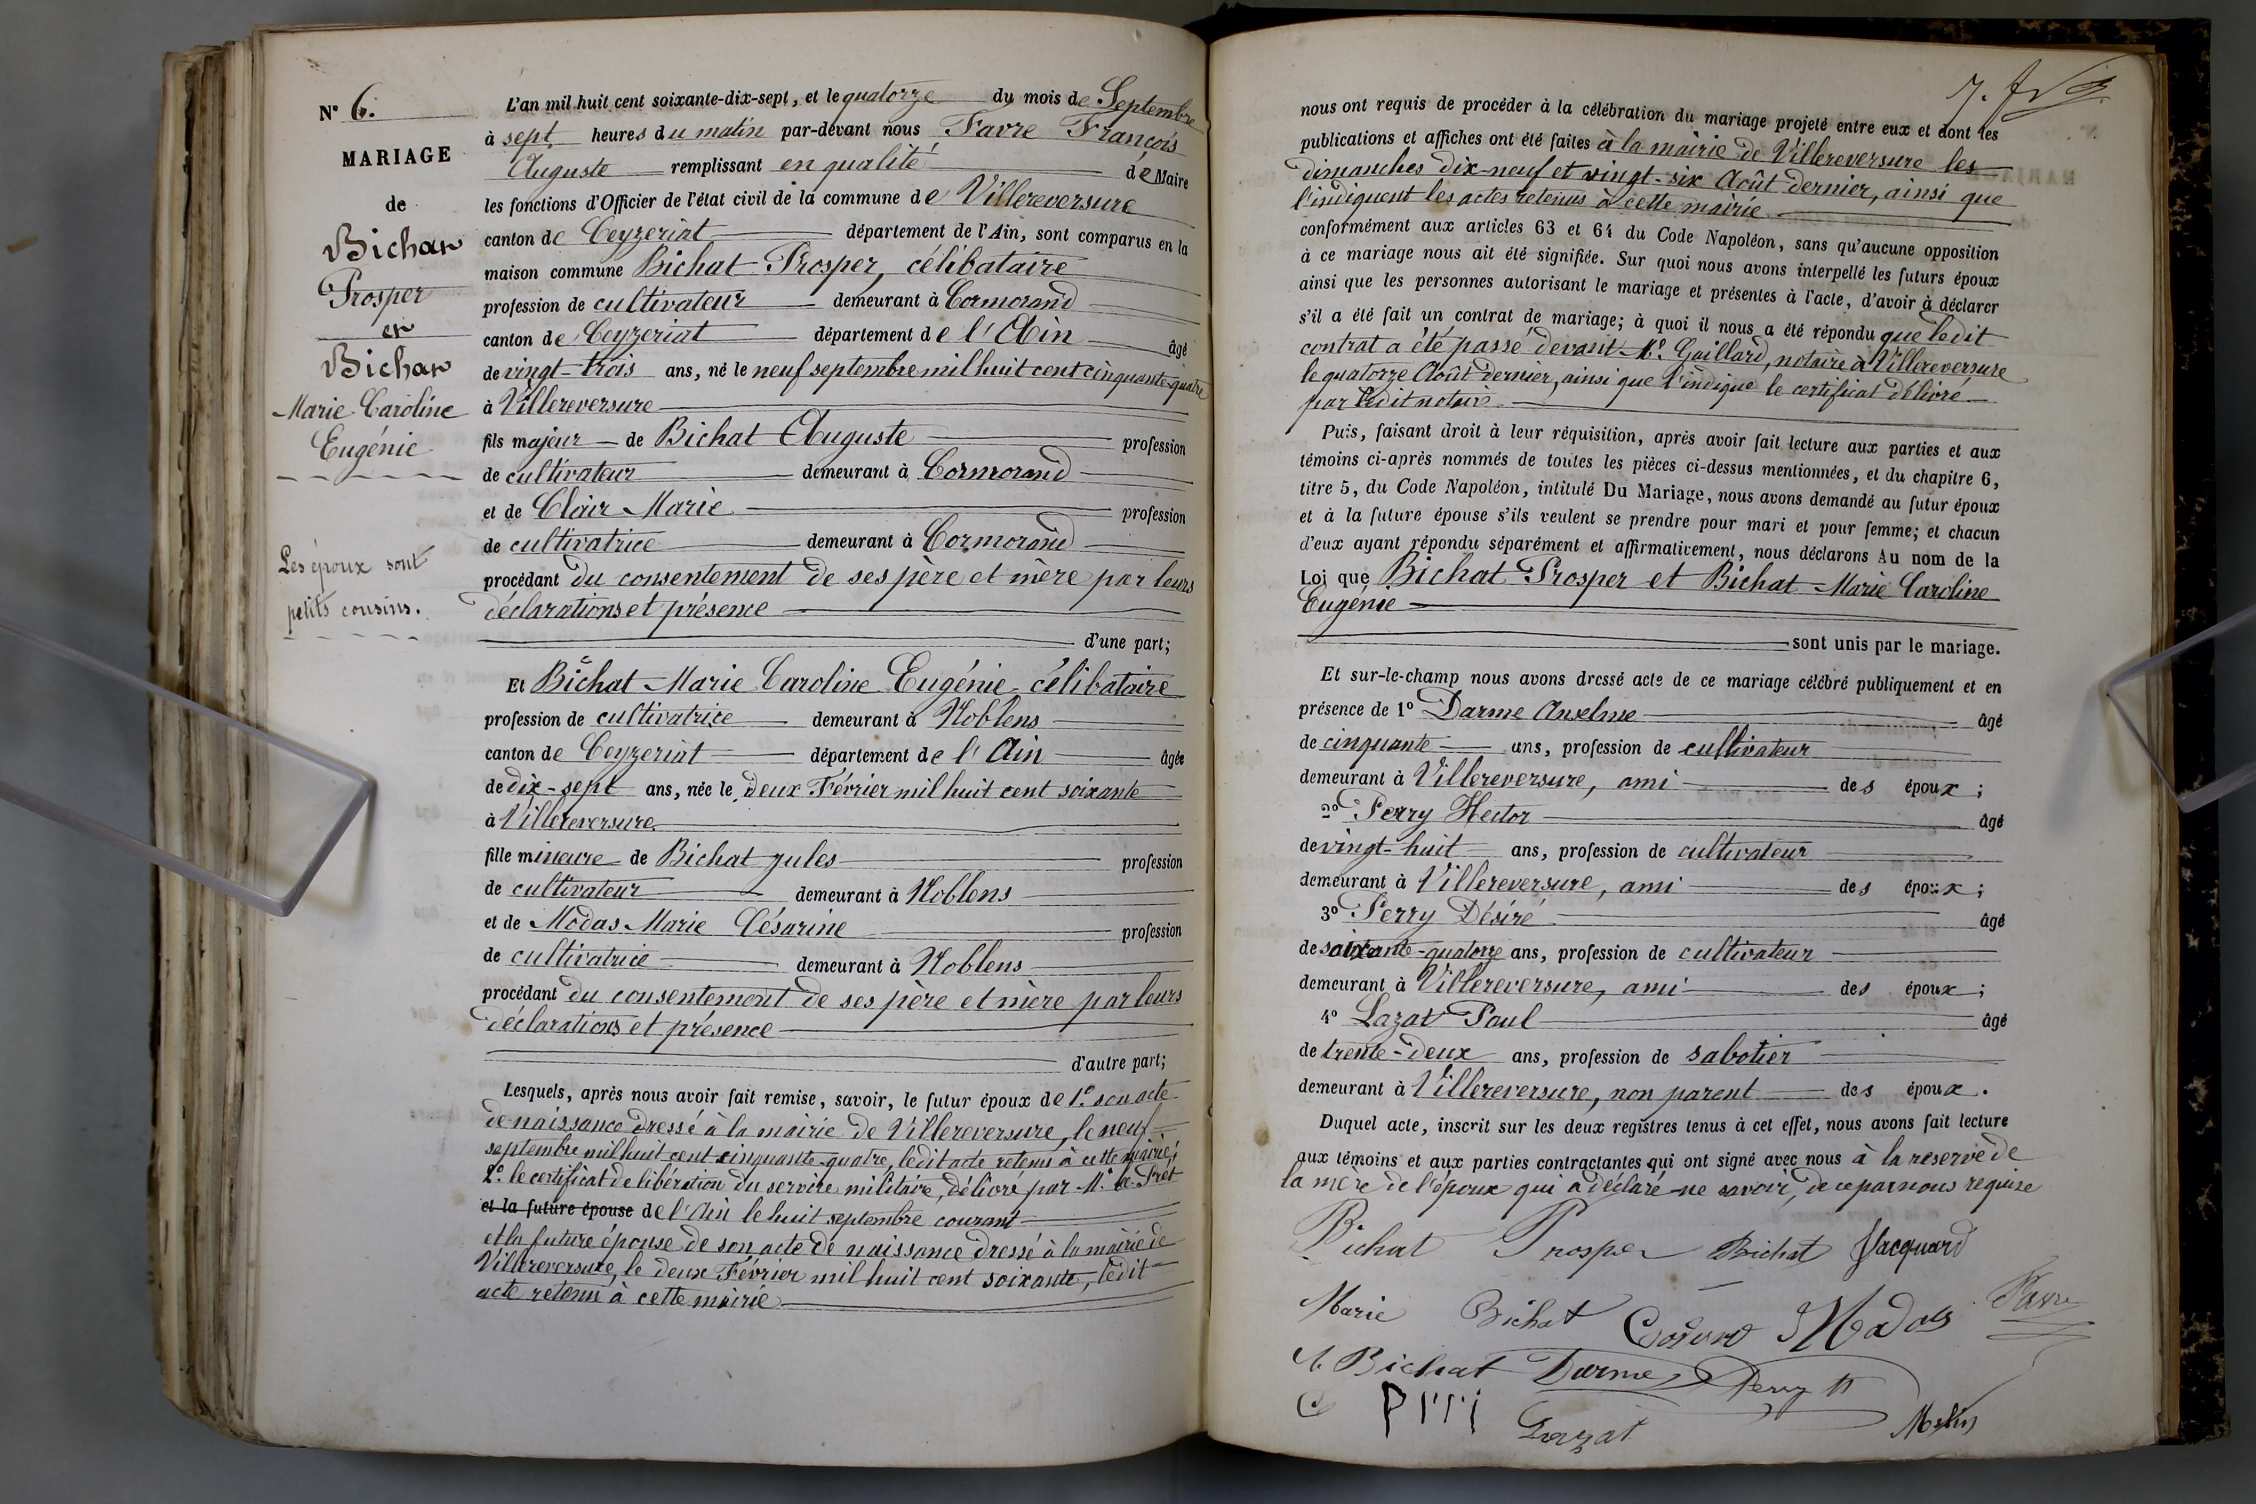 N° 6.
MARIAGE
de
Bichat
Prosper
et
Bichat
Marie Caroline
Eugénie
Les époux sont
petits cousins.
L'an mil huit cent soixante-dix-sept, et le quatorze du mois de Septembre
à sept heures du matin par-devant nous Favre François
Auguste remplissant en qualité de Maire
les fonctions d'Officier de l'état civil de la commune de Villereversure
canton de Ceyzeriat département de l'Ain, sont comparus en la
maison commune Bichat Prosper, célibataire
profession de cultivateur demeurant à Cormorand
canton de Ceyzeriat département de l'Ain âgé
de vingt-trois ans, né le neuf septembre mil huit cent cinquante-quatre
à Villereversure
fils majeur de Bichat Auguste profession
de cultivateur demeurant à Cormorand
et de Clair Marie profession
de cultivatrice demeurant à Cormorand
procédant du consentement de ses père et mère par leurs
déclarations et présence
d'une part;
Et Bichat Marie Caroline Eugénie célibataire
profession de cultivatrice demeurant à Noblens
canton de Ceyzeriat département de l'Ain âgée
de dix-sept ans, née le deux Février mil huit cent soixante
à Villereversure
fille mineure de Bichat Jules profession
de cultivateur demeurant à Noblens
et de Modas Marie Césarine profession
de cultivatrice demeurant à Noblens
procédant du consentement de ses père et mère par leurs
déclarations et présence
d'autre part;
Lesquels, après nous avoir fait remise, savoir, le futur époux de 1° son acte
de naissance dressé à la mairie de Villereversure, le neuf
septembre mil huit cent cinquante-quatre, ledit acte retenu à cette mairie;
2° le certificat de libération du service militaire, délivré par Mr le Prét
et la future épouse de l'Ain le huit septembre courant
et la future épouse de son acte de naissance dressé à la mairie de
Villereversure, le deux Février mil huit cent soixante, ledit
acte retenu à cette mairie
7.
nous ont requis de procéder à la célébration du mariage projeté entre eux et dont les
publications et affiches ont été faites à la mairie de Villereversure les
dimanches dix-neuf et vingt-six Août dernier, ainsi que
l'indiquent les actes retenus à cette mairie
conformément aux articles 63 et 64 du Code Napoléon, sans qu'aucune opposition
à ce mariage nous ait été signifiée. Sur quoi nous avons interpellé les futurs époux
ainsi que les personnes autorisant le mariage et présentes à l'acte, d'avoir à déclarer
s'il a été fait un contrat de mariage; à quoi il nous a été répondu que ledit
contrat a été passé devant Me. Gaillard, notaire à Villereversure
le quatorze Août dernier, ainsi que l'indique le certificat délivré
par ledit notaire
Puis, faisant droit à leur réquisition, après avoir fait lecture aux parties et aux
témoins ci-après nommés de toutes les pièces ci-dessus mentionnées, et du chapitre 6,
titre 5, du Code Napoléon, intitulé Du Mariage, nous avons demandé au futur époux
et à la future épouse s'ils veulent se prendre pour mari et pour femme; et chacun
d'eux ayant répondu séparément et affirmativement, nous déclarons Au nom de la
Loi que Bichat Prosper et Bichat Marie Caroline
Eugénie
sont unis par le mariage.
Et sur-le-champ nous avons dressé acte de ce mariage célébré publiquement et en
présence de 1° Darme Anselme âgé
de cinquante ans, profession de cultivateur
demeurant à Villereversure, ami des époux;
2° Perry Hector âgé
de vingt-huit ans, profession de cultivateur
demeurant à Villereversure, ami des époux;
3° Perry Désiré âgé
de soixante-quatorze ans, profession de cultivateur
demeurant à Villereversure, ami des époux;
4° Lazat Paul âgé
de trente-deux ans, profession de sabotier
demeurant à Villereversure, non parent des époux.
Duquel acte, inscrit sur les deux registres tenus à cet effet, nous avons fait lecture
aux témoins et aux parties contractantes qui ont signé avec nous à la réserve de
la mère de l'époux qui a déclaré ne savoir, de ce par nous requise
Bichat Prosper Bichat Jacquard
Marie Bichat Modas Favre
A. Bichat Darme Perry H
Lazat